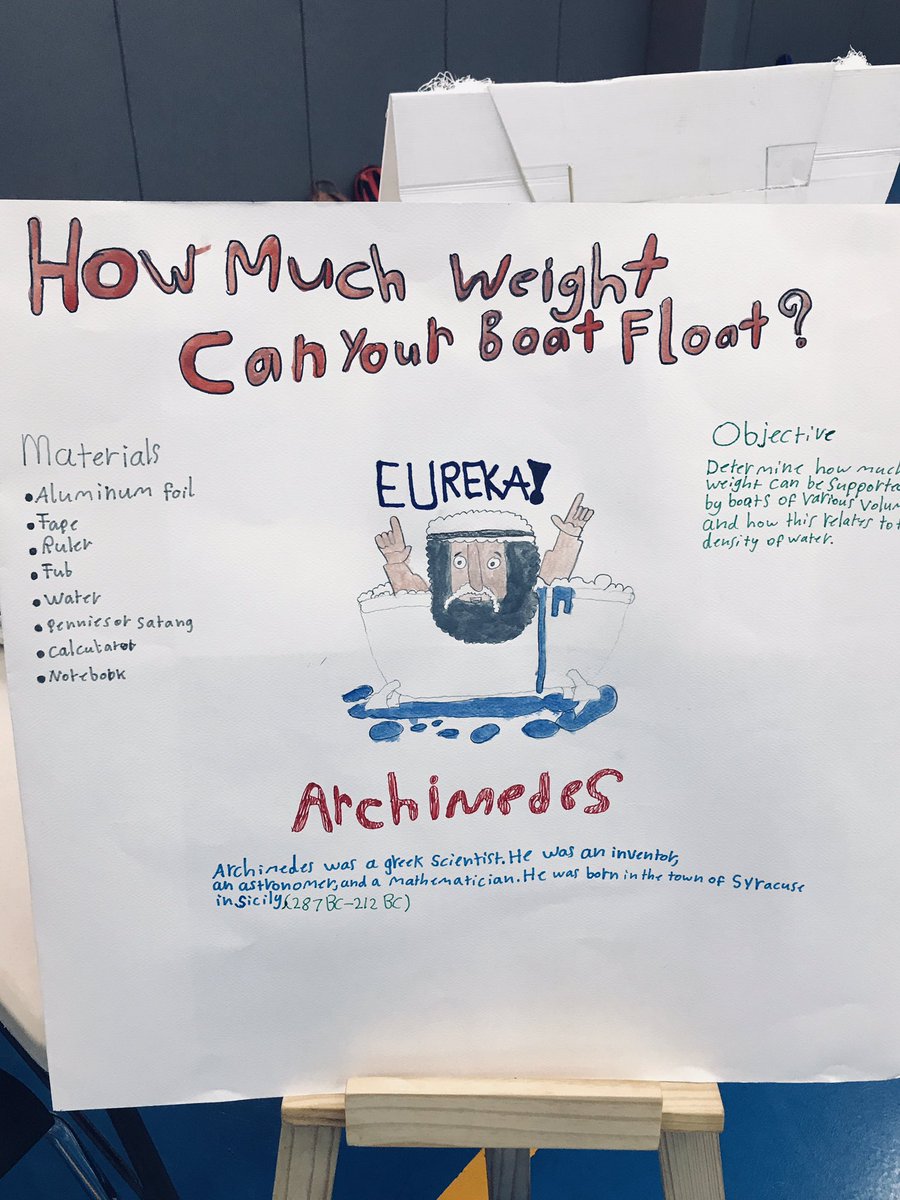 How Much Weight
Can Your Boat Float?
Materials
•Aluminum foil
•Tape
•Ruler
•Tub
•Water
•Pennies or Satang
•Calculator
•Notebook
EUREKA!
Objective
Determine how much
weight can be
by boats of various
and how this relates to
density of water.
Archimedes
Archimedes was a greek Scientist. He was an inventor,
an astronomer, and a mathematician. He was born in the town of Syracuse
in Sicily, (287 BC-212 BC)